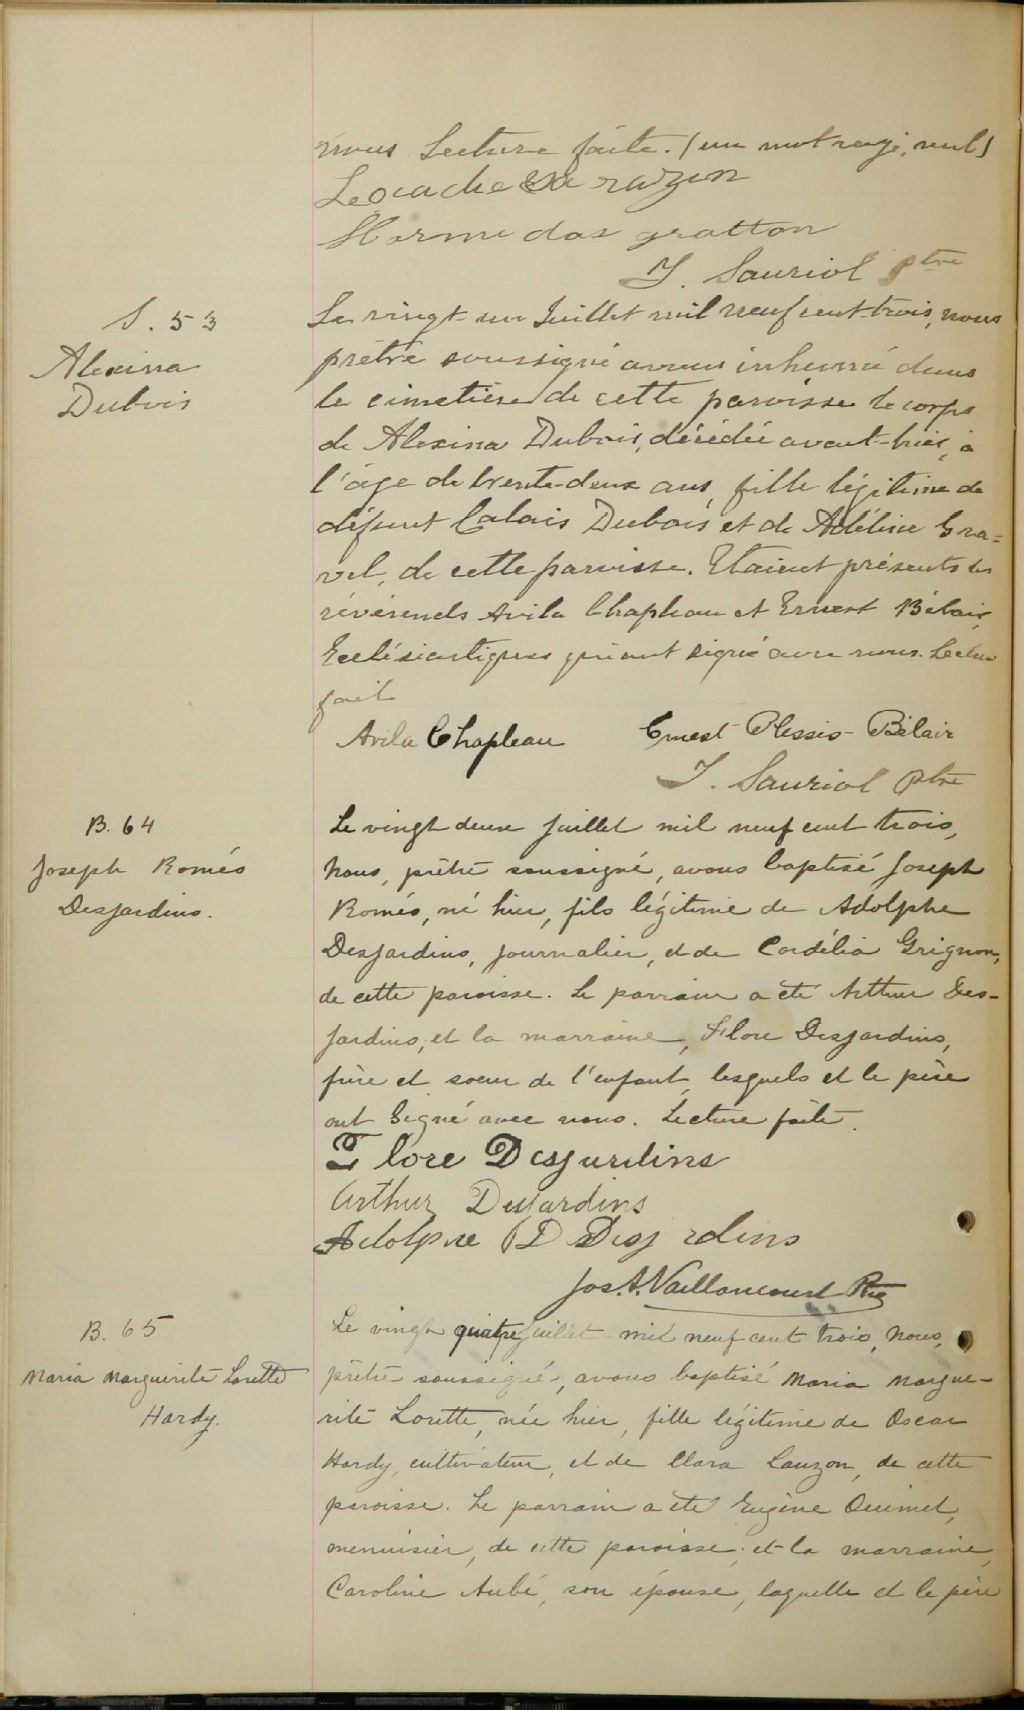 nous Lecture faite. (un mot rayé, nul)
Leocadie Sarazin
Hormidas gratton
J. Sauriol ptre
S. 53
Alexina
Dubois
Le vingt-un Juillet mil neuf cent-trois, nous
prêtre soussigné avons inhumé dans
le cimetière de cette paroisse le corps
de Alexina Dubois, décédée avant-hier, à
l'âge de trente-deux ans, fille légitime de
défunt Calais Dubois et de Adéline Gra=
vel, de cette paroisse. Etaient présents les
révérends Avila Chapleau et Ernest Bélair,
Ecclésiastiques qui ont signé avec nous. Lecture
faite
Avila Chapleau Ernest Plessis-Bélair
J. Sauriol ptre
B. 64
Joseph Roméo
Desjardins.
Le vingt deux Juillet mil neuf cent trois,
Nous, prêtre soussigné, avons baptisé Joseph
Roméo, né hier, fils légitime de Adolphe
Desjardins, journalier, et de Cordélia Grignon,
de cette paroisse. Le parrain a été Arthur Des-
jardins, et la marraine, Flore Desjardins,
frère et soeur de l'enfant, lesquels et le père
ont signé avec nous. Lecture faite.
Flore Desjardins
Arthur Desjardins
Adolphe D Desjardins
Jos. A. Vaillancourt Ptre
B. 65
Maria Marguerite Lorette
Hardy.
Le vingt quatre Juillet mil neuf cent trois, Nous,
prêtre soussigné, avons baptisé Maria Margue-
rite Lorette, née hier, fille légitime de Oscar
Hardy, cultivateur, et de Clara Lauzon, de cette
paroisse. Le parrain a été Eugène Ouimet,
menuisier, de cette paroisse, et la marraine,
Caroline Aubé, son épouse, laquelle et le père